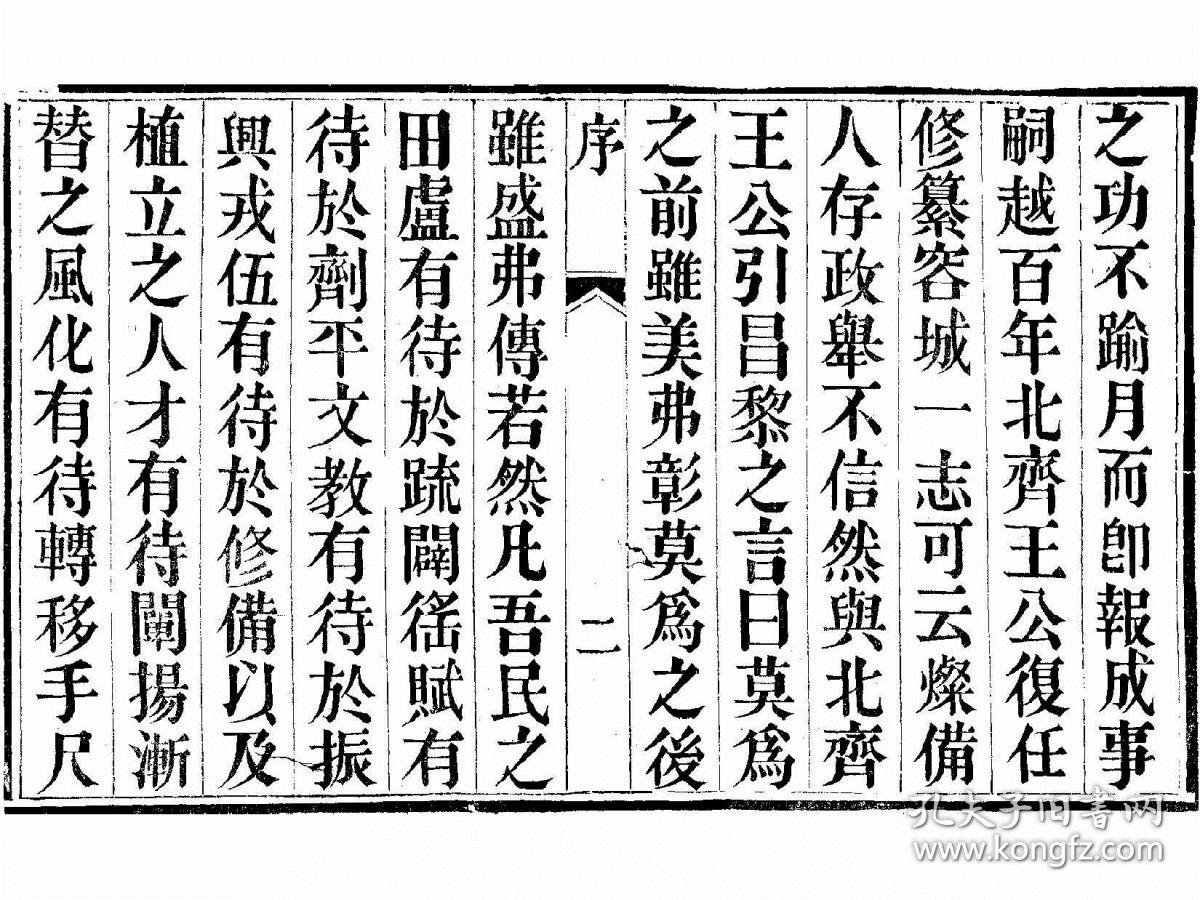 之功不踰月而卽報成事
嗣越百年北齊王公復任
修纂容城一志可云燦備
人存政舉不信然與北齊
王公引昌黎之言曰莫爲
之前雖美弗彰莫爲之後
序 二
雖盛弗傳若然凡吾民之
田盧有待於疏闢徭賦有
待於劑平文教有待於振
興戎伍有待於修備以及
植立之人才有待闡揚漸
替之風化有待轉移手尺
孔夫子旧书网
www.kongfz.com